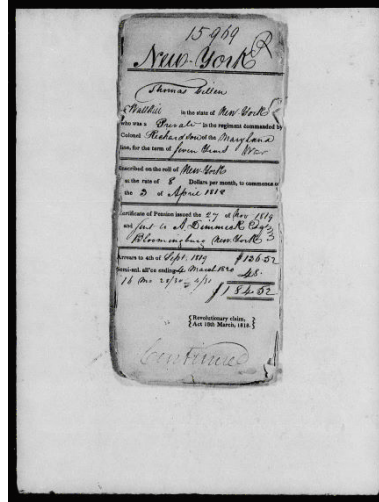 15969
New-York
Thomas Cillen
Wallkill in the state of New York
who was a Private in the regiment commanded by
Colonel Richardson of the Maryland
line, for the term of Seven Years War
Inscribed on the roll of New York
at the rate of 8 Dollars per month, to commence on
the 3 of April 1818
Certificate of Pension issued the 27 of Nov 1819
and sent to A. Dimmick Esqr
Bloomingburg New York
Arrears to 4th of Sept. 1819 $136.52
Semi-anl. all'ce ending 4 March 1820 48.
16 mo 28/30
$184.52
{Revolutionary claim,}
{Act 18th March, 1818.}
Continued